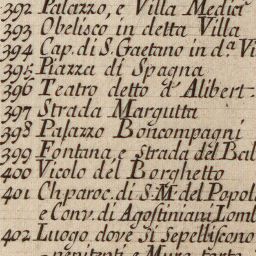 392 Palazzo, e Villa Medici
393 Obelisco in detta Villa
394 Cap. di S. Gaetano in d.ª Vi
395 Piazza di Spagna
396 Teatro detto d' Alibert
397 Strada Margutta
398 Palazzo Boncompagni
399 Fontana e strada del Bab
400 Vicolo del Borghetto
401 Ch. paroc. di S. M. del Popol
e Conv. di Agostiniani Lomb
402 Luogo dove si sepelliscono
penitenti e Muro torto